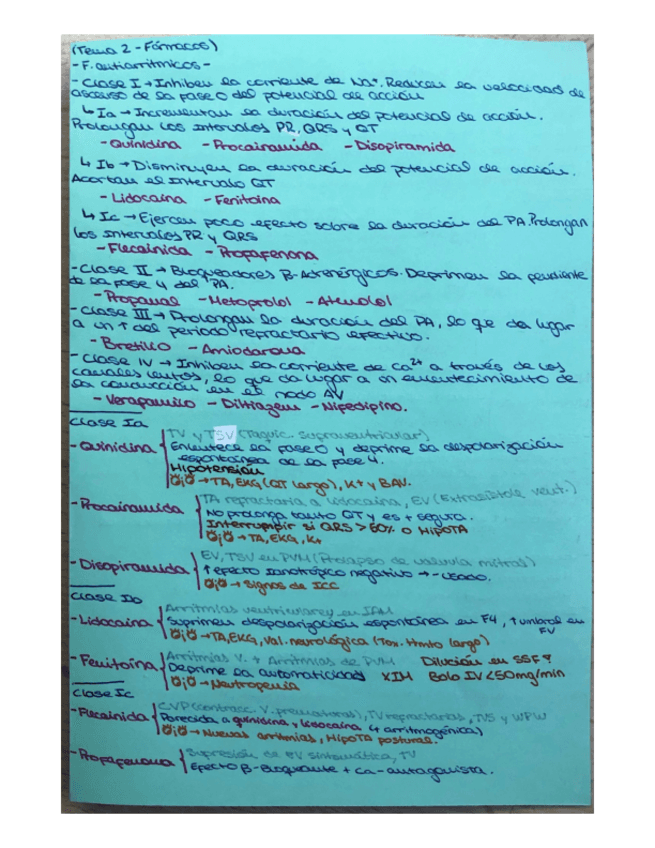 (Tema 2 - Fármacos)
- F. antiarrítmicos -
- Clase I → Inhiben la corriente de Na⁺. Reducen la velocidad de
ascenso de la fase 0 del potencial de acción
↳ Ia → Incrementan la duración del potencial de acción.
Prolongan los intervalos PR, QRS y QT
- Quinidina - Procainamida - Disopiramida
↳ Ib → Disminuyen la duración del potencial de acción.
Acortan el intervalo QT
- Lidocaína - Fenitoína
↳ Ic → Ejercen poco efecto sobre la duración del PA. Prolongan
los intervalos PR y QRS
- Flecainida - Propafenona
- Clase II → Bloqueadores β-Adrenérgicos. Deprimen la pendiente
de la fase 4 del PA.
- Propanal - Metoprolol - Atenolol
- Clase III → Prolongan la duración del PA, lo que da lugar
a un ↑ del periodo refractario efectivo.
- Bretilio - Amiodarona
- Clase IV → Inhiben la corriente de Ca²⁺ a través de los
canales lentos, lo que da lugar a un enlentecimiento de
la conducción en el nodo AV
- Verapamilo - Diltiazem - Nifedipino.
Clase Ia
TV y TSV (Taquic. Supraventricular)
- Quinidina Enlentece la fase 0 y deprime la despolarización
espontánea de la fase 4.
Hipotensión
¡Ojo! → TA, EKG (QT largo), K+ y BAV.
TA refractaria a lidocaína, EV (Extrasístole vent.)
- Procainamida No prolonga tanto QT y es + segura.
Interrumpir si QRS > 50% o HipoTA
→ TA, EKG, K+
EV, TSV en PVM (Prolapso de valvula mitral)
- Disopiramida ↑ efecto ionotrópico negativo → - usado.
→ Signos de ICC
Clase Ib
Arritmias ventriculares en IAM
- Lidocaína Suprimen despolarización espontánea en F4, ↑ umbral en
FV
→ TA, EKG, Val. neurológica (Tox. Hmto largo)
- Fenitoína Arritmias V. + Arritmias de PVM Dilución en SSF?
Deprime la automaticidad XIM Bolo IV < 50mg/min
→ Neutropenia
Clase Ic
- Flecainida CVP (contracc. V. prematuras), TV refractarias, TVS y WPW
Parecida a quinidina y lidocaína (↓ arritmogénica)
→ Nuevas arritmias, HipoTA postural.
- Propafenona Supresión de EV sintomática, TV
Efecto β-Bloqueante + Ca-antagonista.